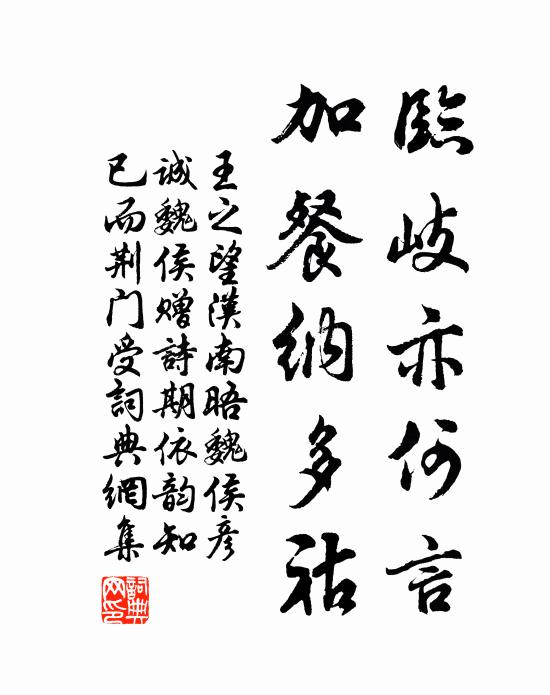 臨岐亦何言
加餐納多祜
王之望漢南晤魏侯彥
诚魏侯赠詩期依韵知
已而荆门受詞典網集
詞典
网印